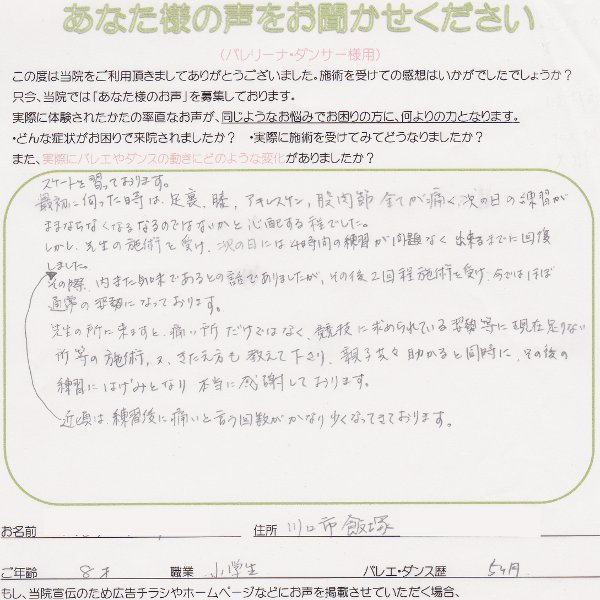 あなた様の声をお聞かせください
(バレリーナ・ダンサー様用)
この度は当院をご利用頂きましてありがとうございました。施術を受けての感想はいかがでしたでしょうか?
只今、当院では「あなた様のお声」を募集しております。
実際に体験されたかたの率直なお声が、同じようなお悩みでお困りの方に、何よりの力となります。
・どんな症状がお困りで来院されましたか? ・実際に施術を受けてみてどうなりましたか?
また、実際にバレエやダンスの動きにどのような変化がありましたか?
スケートを習っております。
最初に伺った時は、足裏、膝、アキレスケン、股関節全てが痛く、次の日の練習が
ままならなくなるのではないかと心配する程でした。
しかし、先生の施術を受け、次の日には4時間の練習が問題なく出来るまでに回復
しました。
その際、内また気味であるとの話でありましたが、その後2回程施術を受け、今ではほぼ
通常の姿勢になっております。
先生の所に来ますと、痛い所だけではなく、競技に求められている姿勢等に現在足りない
所等の施術、又、きたえ方も教えて下さり、親子共々助かると同時に、その後の
練習にはげみとなり本当に感謝しております。
近頃は、練習後に痛いと言う回数がかなり少くなってきております。
お名前 住所 川口市飯塚
ご年齢 8才 職業 小学生 バレエ・ダンス歴 5ヶ月
もし、当院宣伝のため広告チラシやホームページなどにお声を掲載させていただく場合、